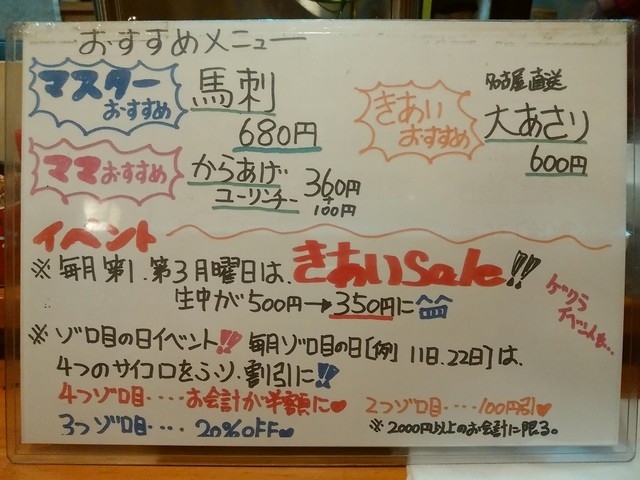 おすすめメニュー
マスターおすすめ
馬刺
680円
きあいおすすめ
名古屋直送
大あさり
600円
ママおすすめ
からあげ 360円
ユーリンチー +100円
イベント
※毎月第1.第3月曜日は、きあいSale!!
生中が500円→350円に
ゲクラ
イベントも…
※ゾロ目の日イベント!! 毎月ゾロ目の日[例]11日.22日]は、
4つのサイコロをふり、割引に!!
4つゾロ目‥‥お会計が半額に♥
2つゾロ目‥‥100円引♥
3つゾロ目‥‥20%OFF♥
※2000円以上のお会計に限る。